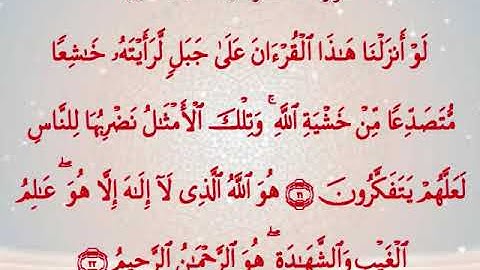 لَوْ أَنزَلْنَا هَـٰذَا ٱلْقُرْءَانَ عَلَىٰ جَبَلٍ لَّرَأَيْتَهُۥ خَـٰشِعًا
مُّتَصَدِّعًا مِّنْ خَشْيَةِ ٱللَّهِ ۚ وَتِلْكَ ٱلْأَمْثَـٰلُ نَضْرِبُهَا لِلنَّاسِ
لَعَلَّهُمْ يَتَفَكَّرُونَ ٢١ هُوَ ٱللَّهُ ٱلَّذِى لَآ إِلَـٰهَ إِلَّا هُوَ ۖ عَـٰلِمُ
ٱلْغَيْبِ وَٱلشَّهَـٰدَةِ ۖ هُوَ ٱلرَّحْمَـٰنُ ٱلرَّحِيمُ ٢٢